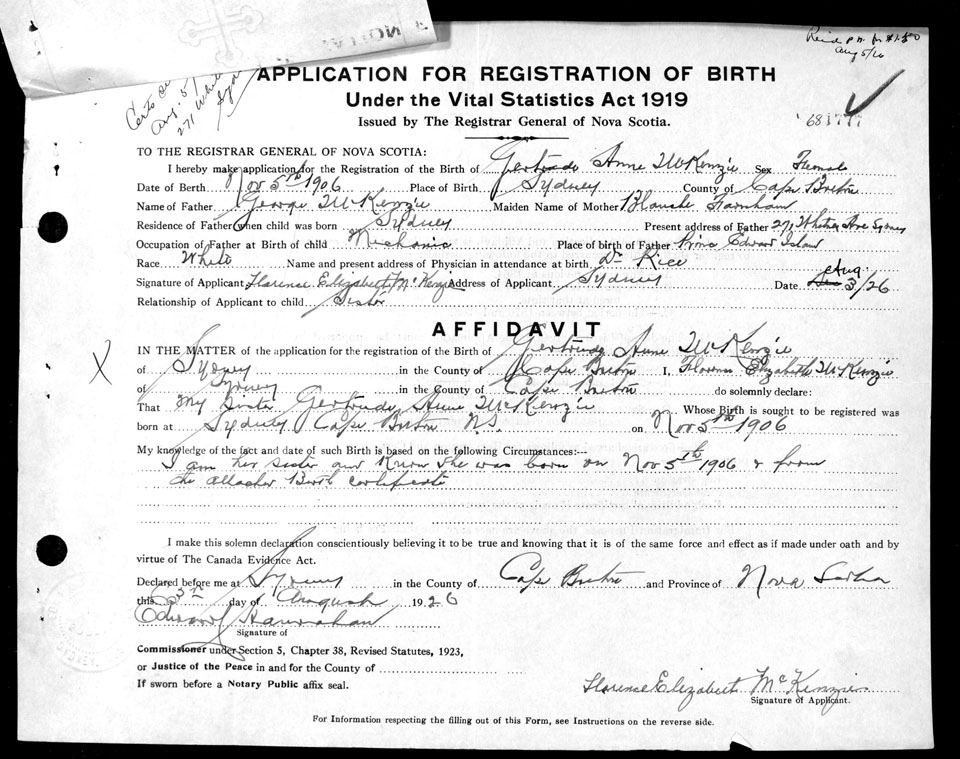 Aug 5/26
Aug. 5/
271 Whit
APPLICATION FOR REGISTRATION OF BIRTH
Under the Vital Statistics Act 1919
Issued by The Registrar General of Nova Scotia.
TO THE REGISTRAR GENERAL OF NOVA SCOTIA:
I hereby make application for the Registration of the Birth of Gertrude Anne McKenzie Sex Female
Date of Berth Nov 5th 1906 Place of Birth Sydney County of Cape Breton
Name of Father George McKenzie Maiden Name of Mother Blanche Farnham
Residence of Father when child was born Sydney Present address of Father 271 Whitney Ave Sydney
Occupation of Father at Birth of child Mechanic Place of birth of Father Prince Edward Island
Race White Name and present address of Physician in attendance at birth Dr Rice
Signature of Applicant Florence Elizabeth McKenzie Address of Applicant Sydney Date Aug 3/26
Relationship of Applicant to child Sister
AFFIDAVIT
X
IN THE MATTER of the application for the registration of the Birth of Gertrude Anne McKenzie
of Sydney in the County of Cape Breton I, Florence Elizabeth McKenzie
of Sydney in the County of Cape Breton do solemnly declare:
That My Sister Gertrude Anne McKenzie Whose Birth is sought to be registered was
born at Sydney Cape Breton N.S. on Nov 5th 1906
My knowledge of the fact and date of such Birth is based on the following Circumstances:---
I am her sister and know she was born on Nov 5th 1906 & from
the attached Birth certificate
I make this solemn declaration conscientiously believing it to be true and knowing that it is of the same force and effect as if made under oath and by
virtue of The Canada Evidence Act.
Declared before me at Sydney in the County of Cape Breton and Province of Nova Scotia
this day of August 1926
Edward Hanrahan
Signature of
Commissioner under Section 5, Chapter 38, Revised Statutes, 1923,
or Justice of the Peace in and for the County of
If sworn before a Notary Public affix seal.
Florence Elizabeth McKenzie
Signature of Applicant.
For Information respecting the filling out of this Form, see Instructions on the reverse side.